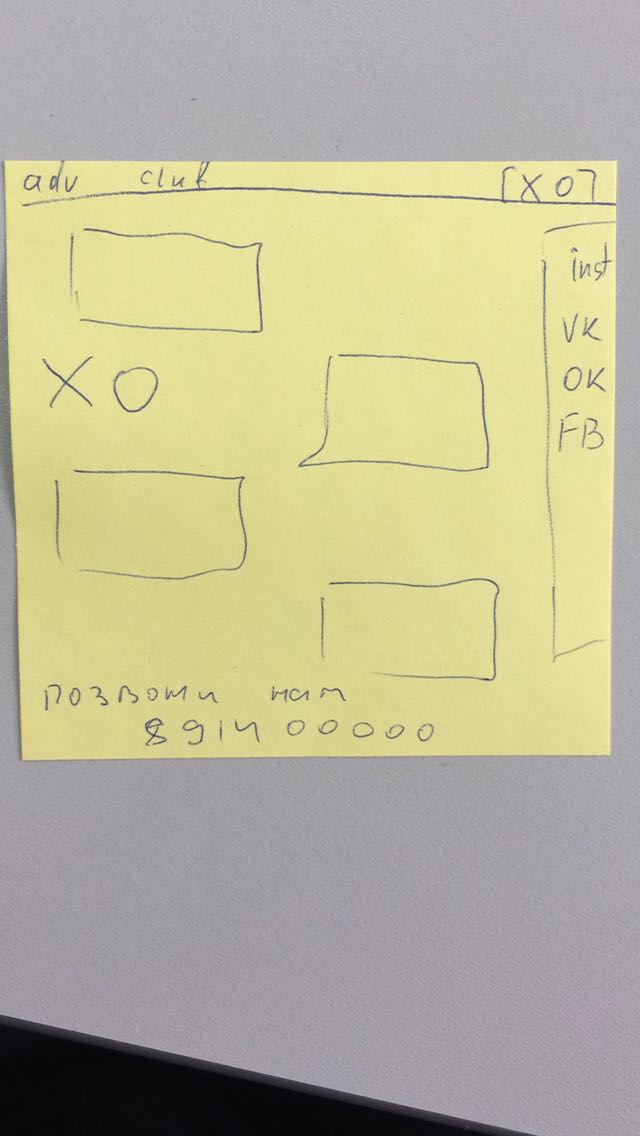 adv club [XO]
inst
VK
OK
FB
XO
позвони нам
8914 00000